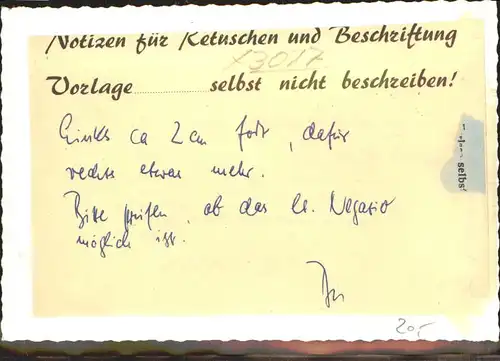 Notizen für Retuschen und Beschriftung
x3017
Vorlage ........ selbst nicht beschreiben!
Links ca 2 cm fort, dafür
rechts etwas mehr.
Bitte prüfen, ob das lt. Negativ
möglich ist.
selbst
20,-